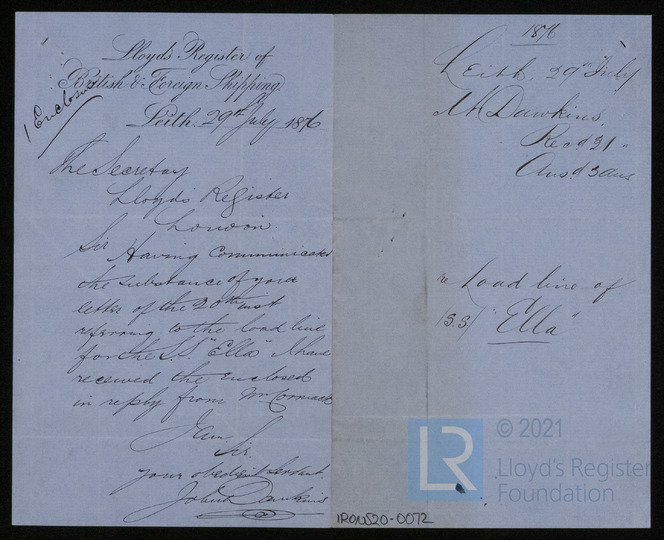 Lloyd's Register of
British & Foreign Shipping.
Leith. 29th July 1876
1 Enclosure
The Secretary
Lloyd's Register
London.
Sir Having Communicated
the substance of your
letter of the 20th inst
referring to the load line
for the S.S. "Ella" I have
received the enclosed
in reply from Mr Cormack
I am
Sir
your obedient Servant
John Dawkins
1876
Leith, 29th July
Mr Dawkins
Recd 31 "
Ansd 3 Aug
re Load line of
(S.S) "Ella"
LR
© 2021
Lloyd's Register
Foundation
IRON520-0072